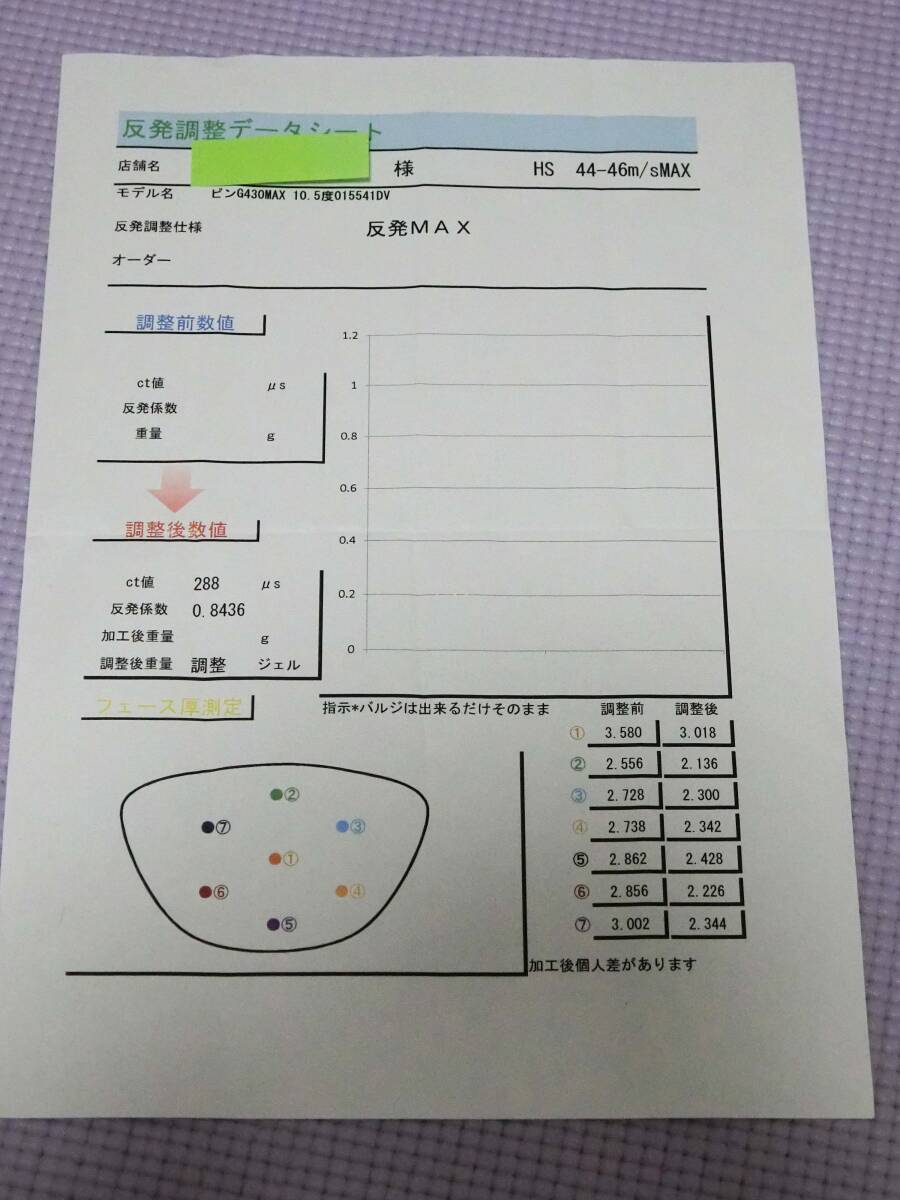 反発調整データシート
店舗名 様 HS 44-46m/sMAX
モデル名 ピンG430MAX 10.5度015541DV
反発調整仕様 反発ＭＡＸ
オーダー
調整前数値
ct値 μs
反発係数
重量 g
調整後数値
ct値 288 μs
反発係数 0.8436
加工後重量 g
調整後重量 調整 ジェル
1.2
1
0.8
0.6
0.4
0.2
0
フェース厚測定
指示*バルジは出来るだけそのまま
調整前 調整後
① 3.580 3.018
② 2.556 2.136
③ 2.728 2.300
④ 2.738 2.342
⑤ 2.862 2.428
⑥ 2.856 2.226
⑦ 3.002 2.344
②
⑦ ③
①
⑥ ④
⑤
加工後個人差があります